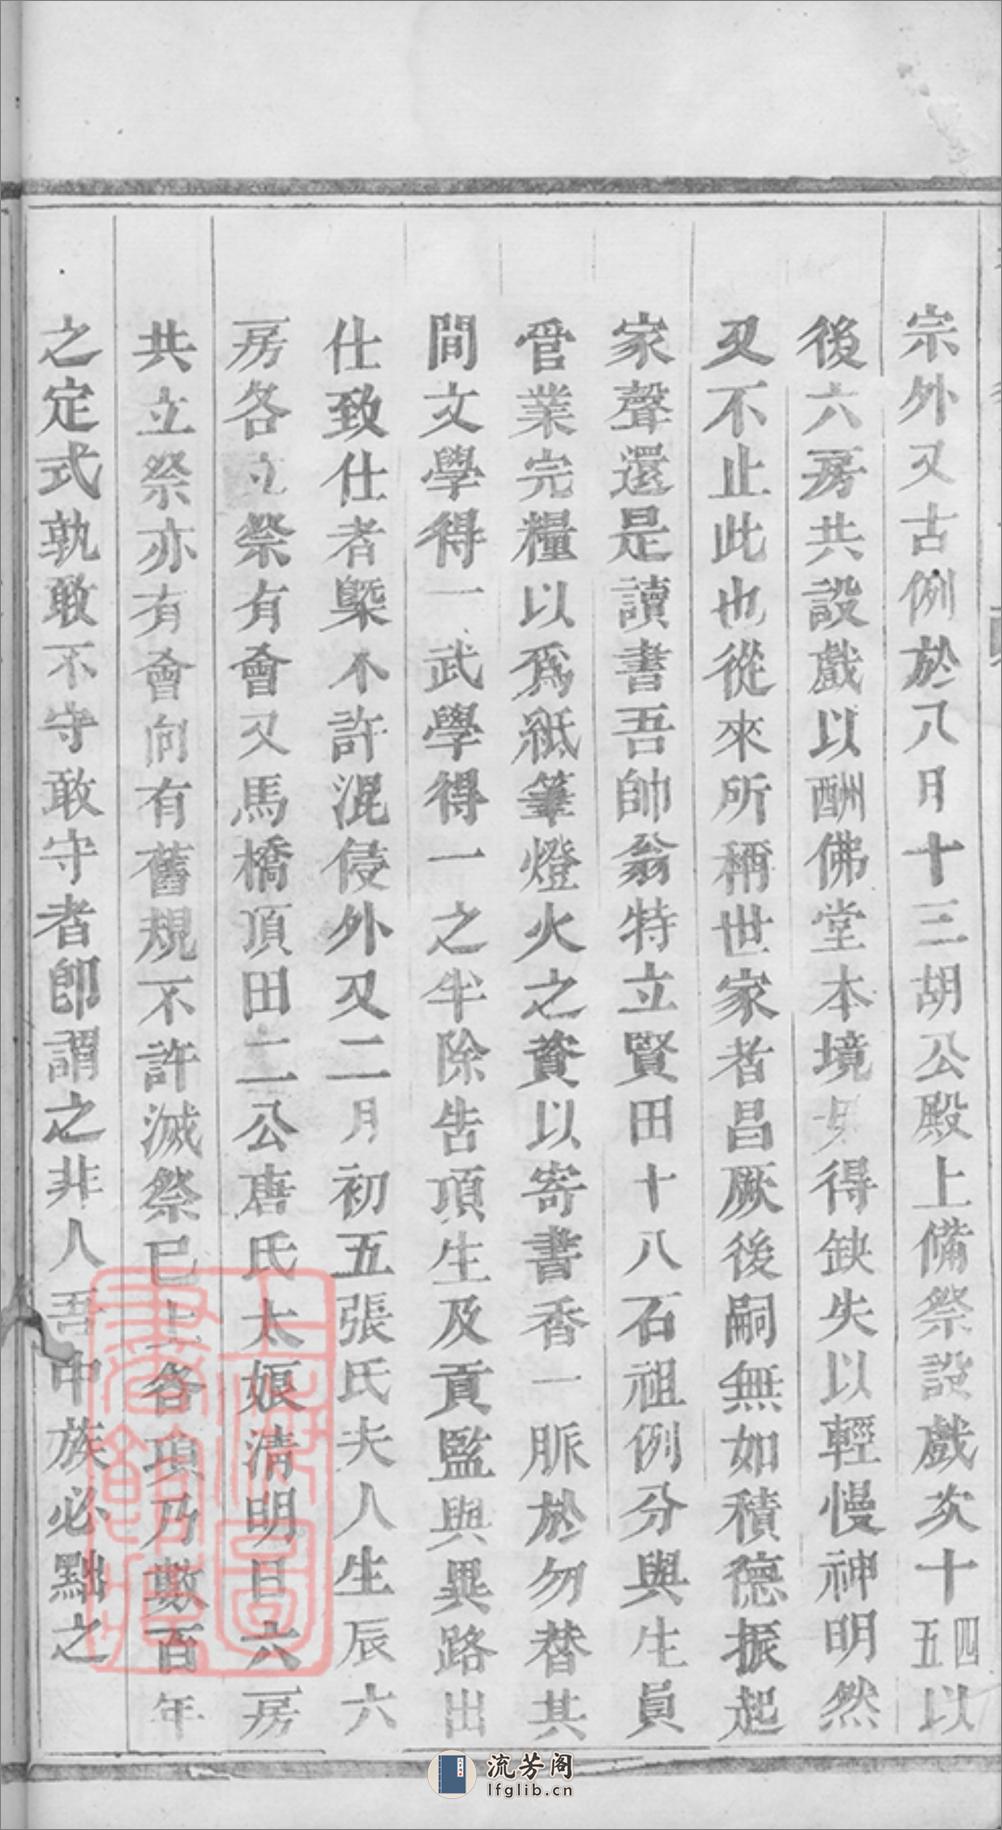 宗外又古例於八月十三胡公殿上備祭設戲次十四五以
後六房共設戲以酬佛堂本境毋得缺失以輕慢神明然
又不止此也從來所稱世家者昌厥後嗣無如積德振起
家聲還是讀書吾帥翁特立賢田十八石祖例分與生員
管業完糧以爲紙筆燈火之資以寄書香一脈於勿替其
間文學得一武學得一之半除告項生及貢監與異路出
仕致仕者槩不許混侵外又二月初五張氏夫人生辰六
房各立祭有會又馬橋頂田二公唐氏太娘清明日六房
共立祭亦有會向有舊規不許滅祭已上各項乃數百年
之定式孰敢不守敢守者即謂之非人吾中族必黜之
流芳阁
lfglib.cn